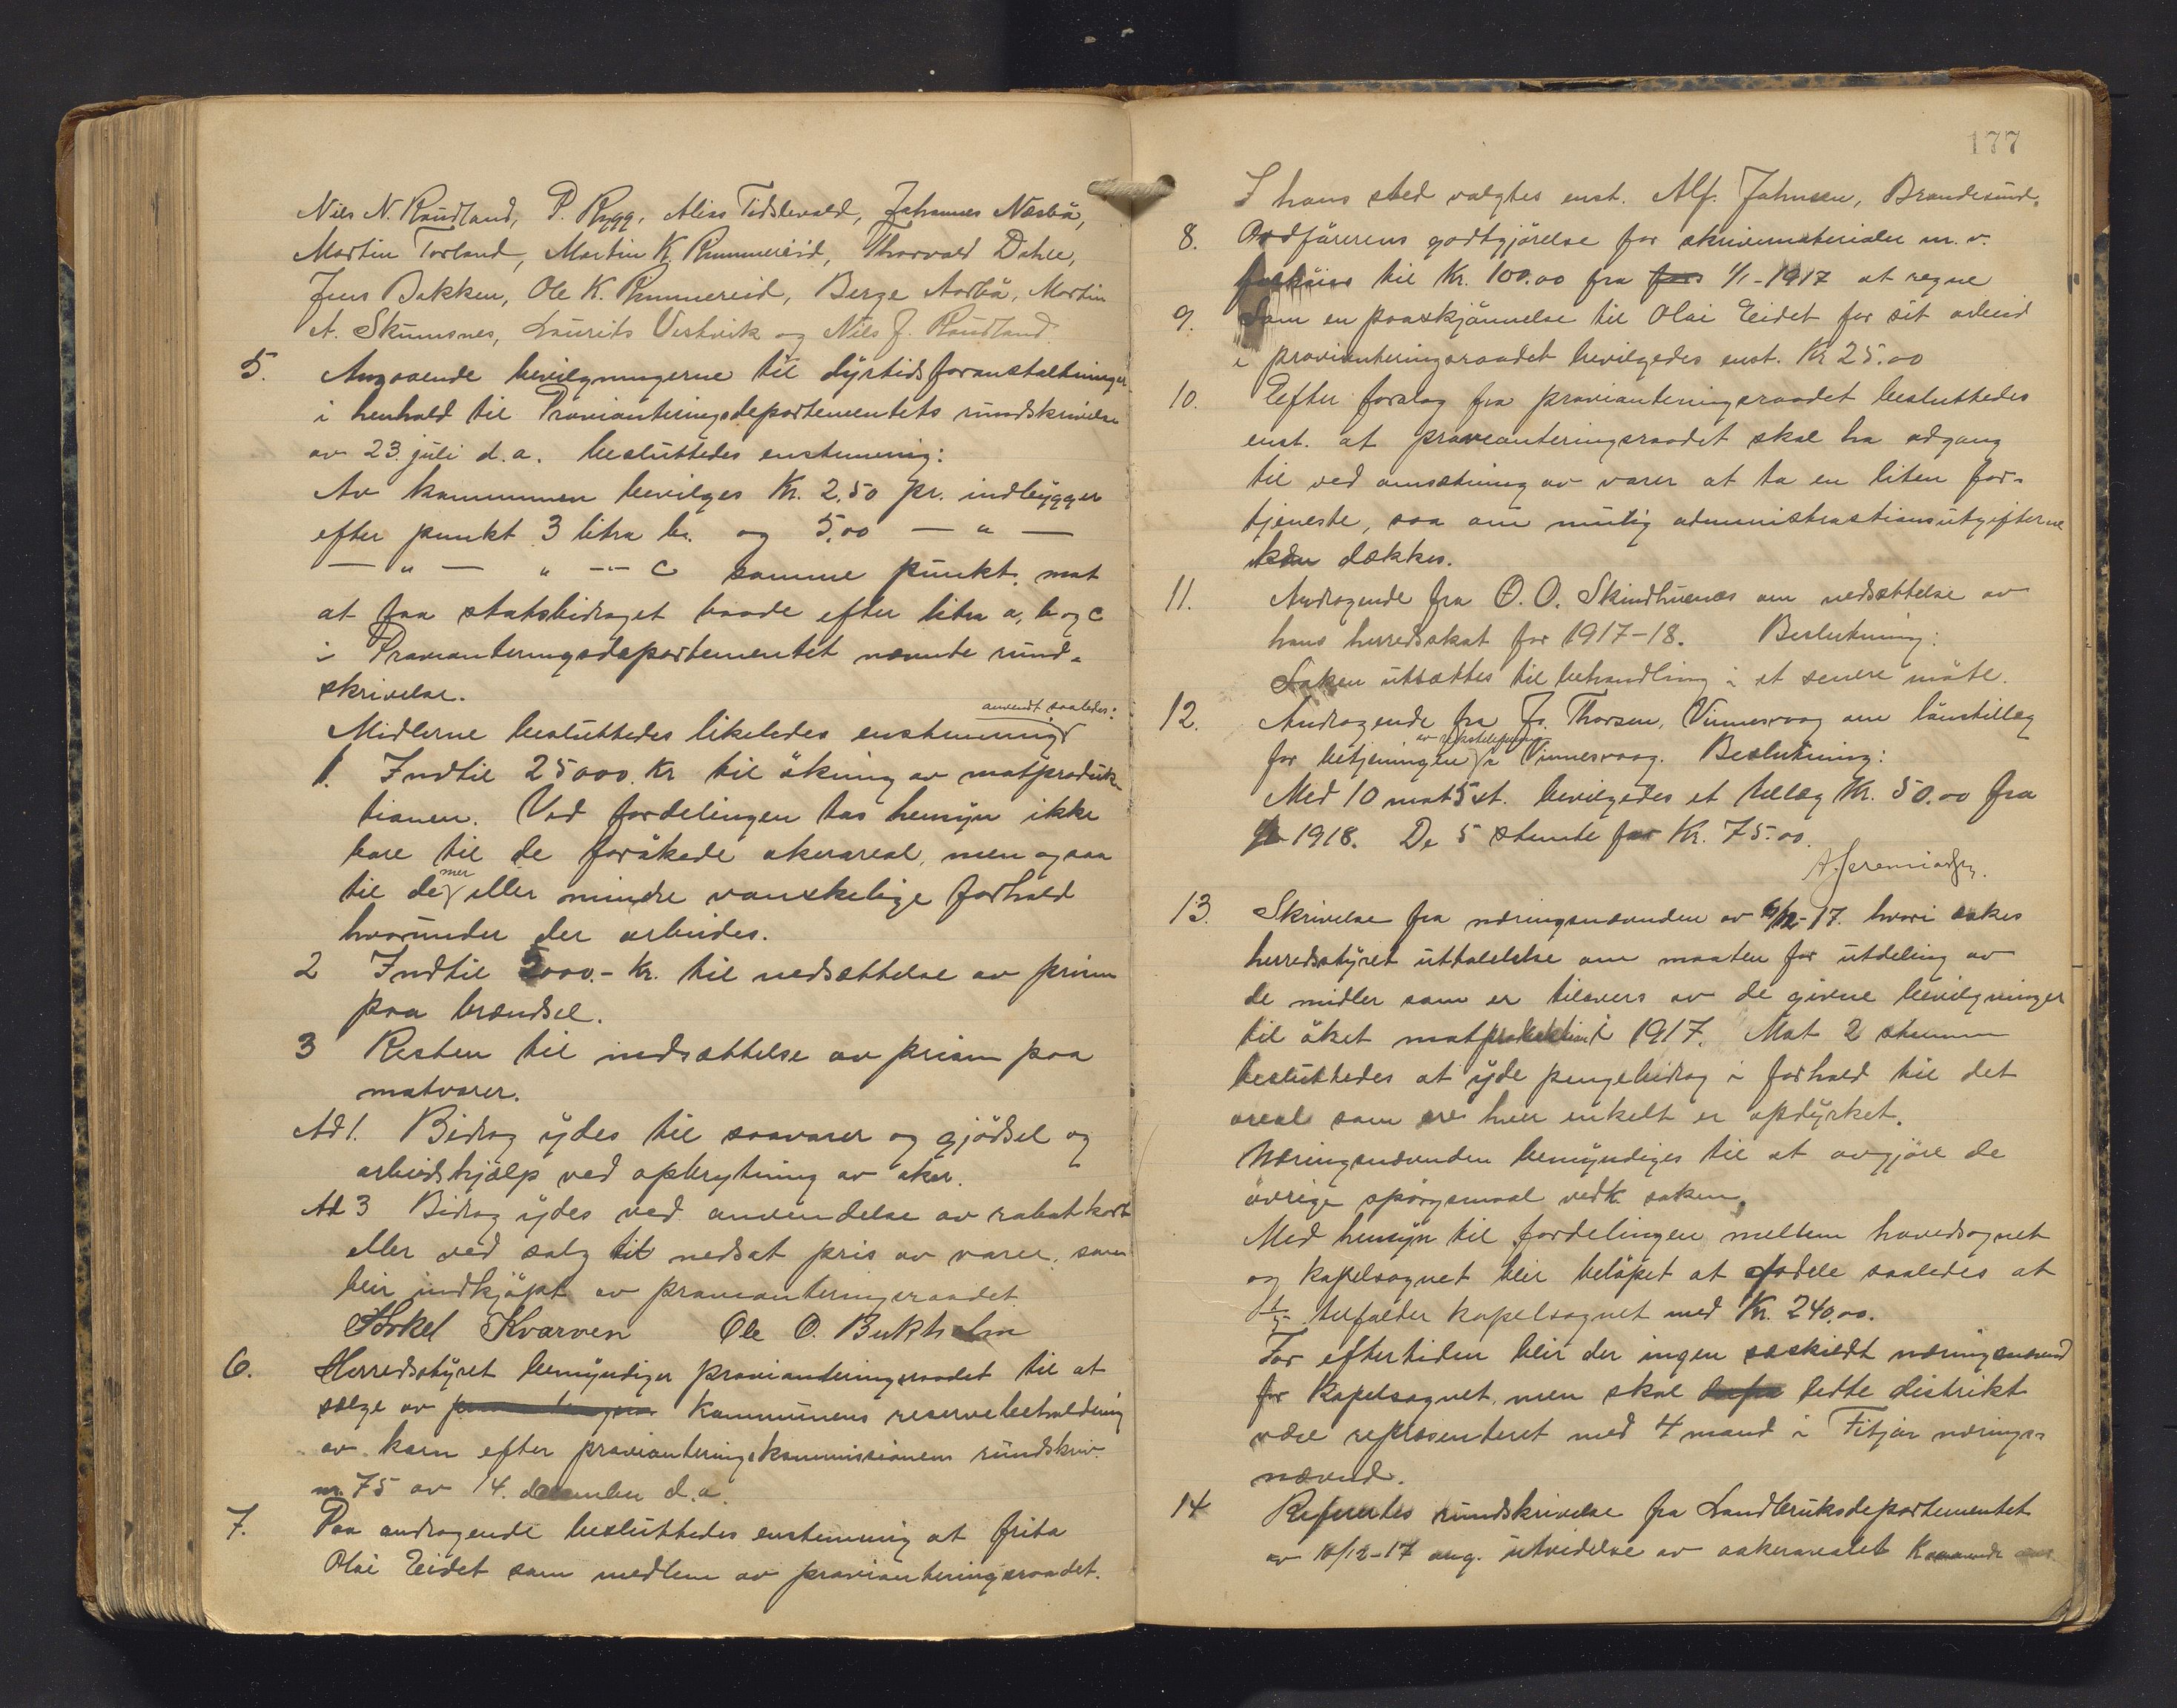 Nils N. Raudland, P. Rygg, Alias Tidslevold, Johannes Næsbø,
Martin Torland, Martin K. Rimmereid, Thorvald Dahle,
Jens Bakken, Ole K. Rimmereid, Berge Aarbø, Martin
A. Skumsnes, Laurits Vestvik og Nils J. Raudland.
5. Angaaende bevilgningerne til dyrtidsforanstaltninger
i henhold til Provianteringsdepartementets rundskrivelse
av 23. juli d.a. besluttedes enstemmig:
Av kommunen bevilges Kr. 2,50 pr. indbygger
efter punkt 3 litra b. og 5,00 — " —
— " — " —"— c samme punkt. mot
at faa statsbidraget baade efter litra a, b og c
i Provianteringsdepartementet nævnte rund-
skrivelse.
anvendt saaledes:
Midlerne besluttedes likeledes enstemmig
1. Indtil 25000 Kr til økning av matproduk-
tionen. Ved fordelingen tas hensyn ikke
bare til de forøkede akerareal, men ogsaa
til de mer eller mindre vanskelige forhold
hvorunder der arbeides.
2 Indtil 5000.- Kr. til nedsættelse av prisen
paa brændsel.
3 Resten til nedsættelse av prisen paa
matvarer.
Ad 1. Bidrag ydes til saavarer og gjødsel og
arbeidshjælp ved opbrytning av aker.
Ad 3 Bidrag ydes ved anvendelse av rabatkort
eller ved salg til nedsat pris av varer, som
blir indkjøpt av provianteringsraadet.
Torkel Kvarven Ole O. Bukholm
6. Herredsstyret bemyndiger provianteringsraadet til at
sælge av kommunens reservebeholdning
av korn efter provianteringskommissionens rundskriv.
nr. 75 av 14. desember d.a.
7. Paa andragende besluttedes enstemmig at frita
Olai Eidet som medlem av provianteringsraadet.
177
I hans sted valgtes enst. Alf. Johnsen, Brandesund.
8. Ordførerens godtgjørelse for skrivematerialer m.v.
forhøies til Kr. 100.00 fra 1/1-1917 at regne
9. Som en paaskjønnelse til Olai Eidet for sit arbeid
i provianteringsraadet bevilgedes enst. Kr 25.00
10. Efter forslag fra provianteringsraadet besluttedes
enst. at provianteringsraadet skal ha adgang
til ved omsætning av varer at ta en liten for-
tjeneste, saa om mulig administrastionsutgifterne
kan dækkes.
11. Andragende fra O. O. Skindhuenes om nedsættelse av
hans herredsskat for 1917-18. Beslutning:
Saken utsættes til behandling i et senere møte.
12. Andragende fra Js. Thorsen, Vinnesvaag om lønstillæg
av rikstelefonen
for betjeningen i Vinnesvaag. Beslutning:
Med 10 mot 5 st. bevilgedes et tillæg Kr. 50.00 fra
1918. De 5 stemte for Kr. 75.00.
A. Jeremiadsen.
13. Skrivelse fra næringsnævnden av 6/12-17. hvori søkes
herredsstyret uttalelse om maaten for utdeling av
de midler som er tilovers av de givne bevilgninger
til øket matproduktion i 1917. Mot 2 stemmer
besluttedes at yde pengebidrag i forhold til det
areal som hver enkelt er opdyrket.
Næringsnævnden bemyndiges til at avgjøre de
øvrige spørgsmaal vedk. saken.
Med hensyn til fordelingen mellem hovedsognet
og kapelsognet blir beløpet at fordele saaledes at
tilfalder kapelsognet med Kr. 240,00.
For eftertiden blir der ingen særskildt næringsnævnd
for kapelsognet, men skal dette distrikt
være repræsenteret med 4 mand i Fitjar nærings-
nævnd.
14 Refertes rundskrivelse fra Landbruksdepartementet
av 10/12-17 ang. utvidelse av aakerarealet